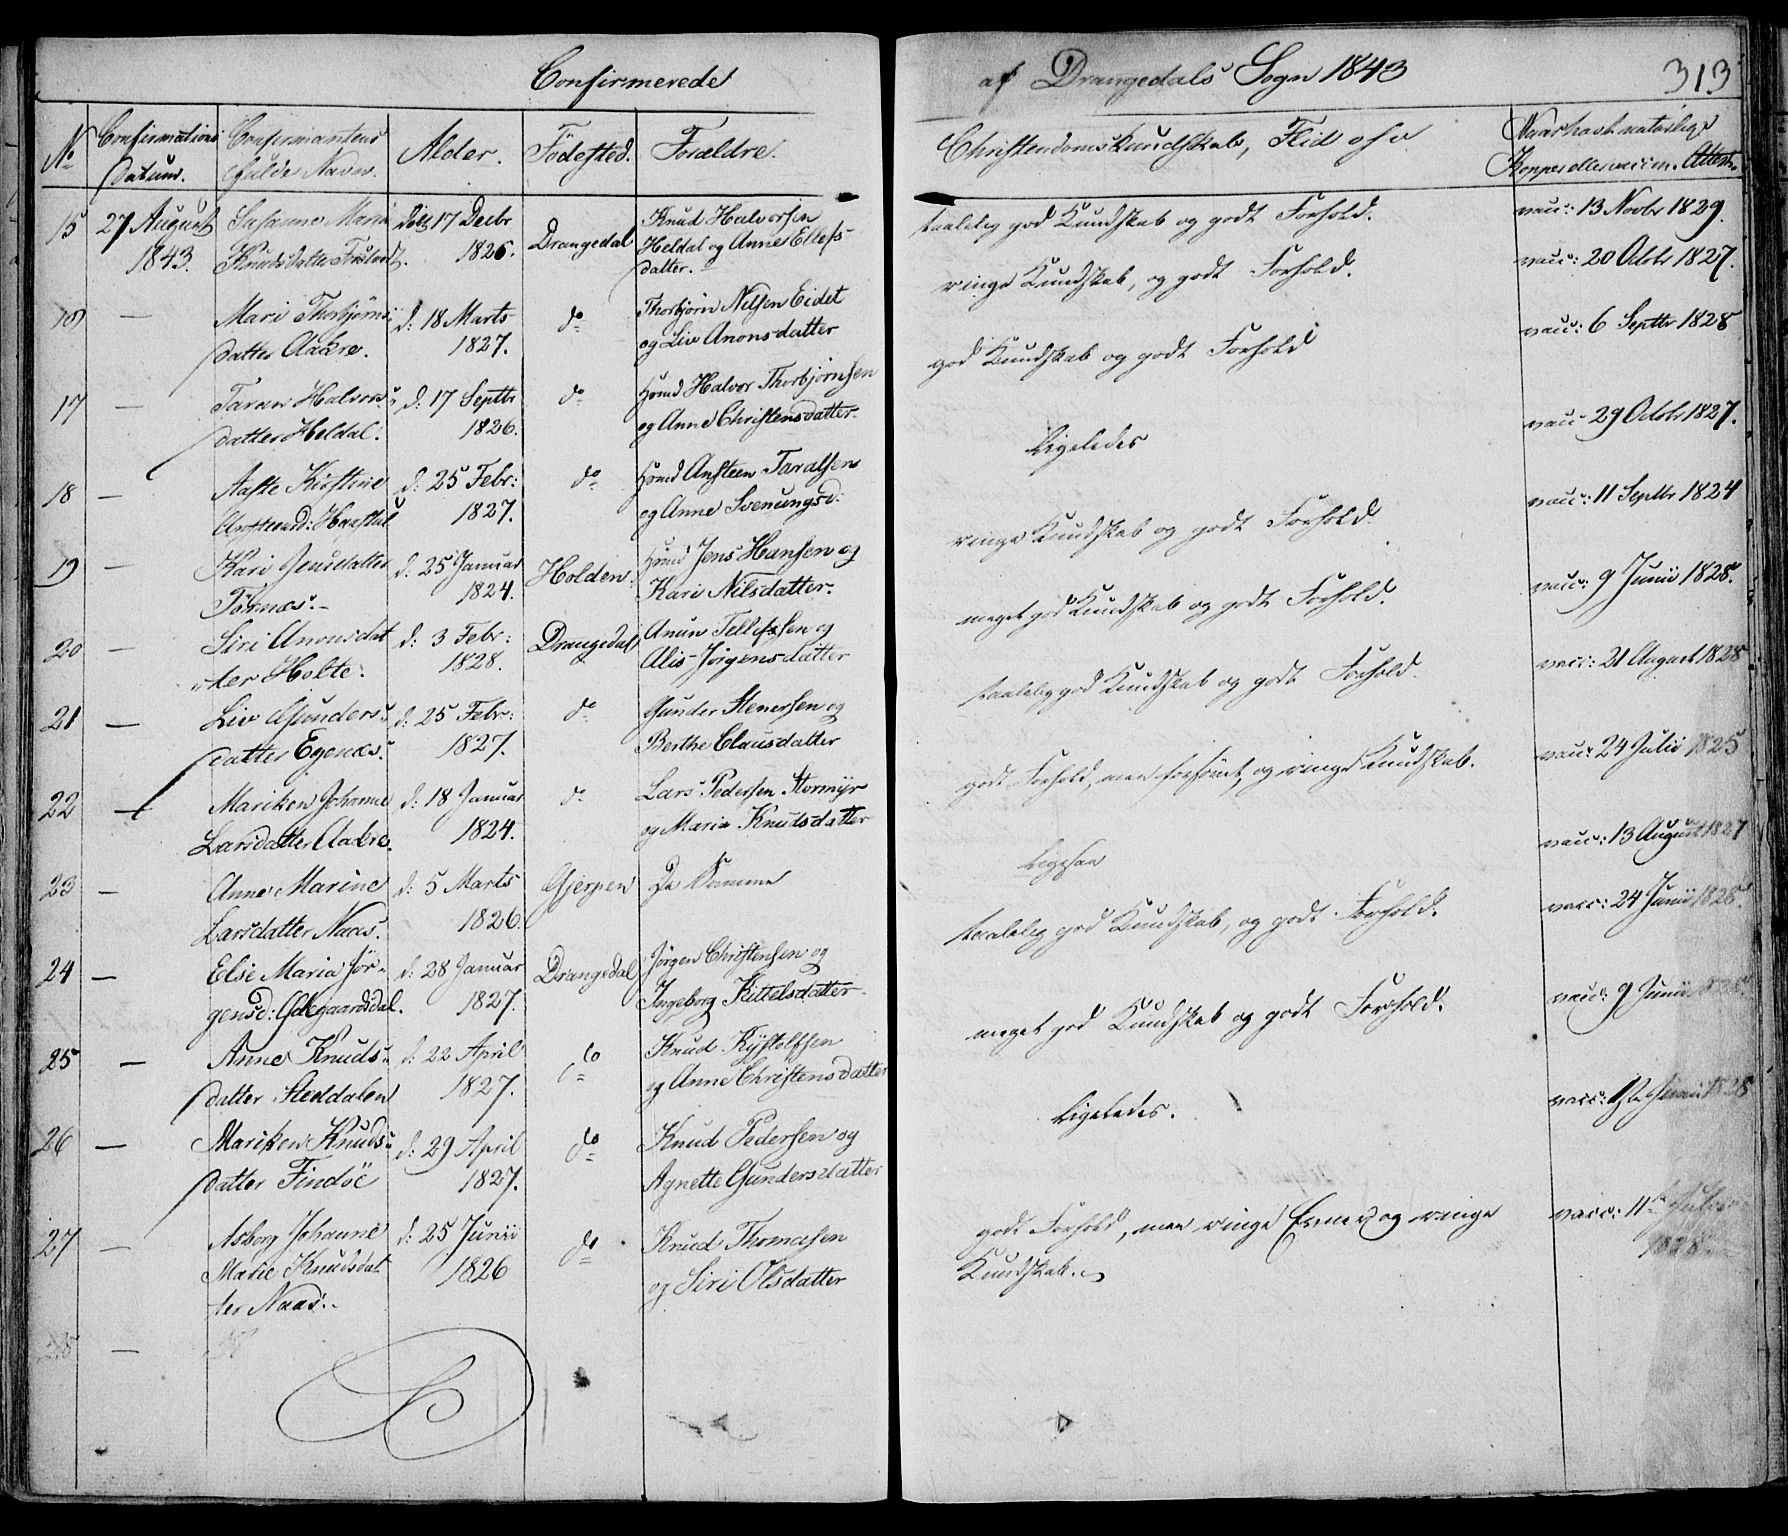 Confirmerede
af Drangedals Sogn 1843
313
No
Confirmations
Datum.
Confirmantens
fulde Navn.
Alder.
Fødested.
Forældre.
Christendoms Kundskab, Flid osv
Naar havt naturlige
Kopper eller vaccin. Attest.
15
27 August
1843.
Susanne Maria
Knudsdatter
17 Decbr
1826.
Drangedal
Knud Halvorsen
Heldal og Anne Ellefs-
datter.
taalelig god Kundskab og godt Forhold.
vacc: 13 Novbr 1829.
16
—
Mari Thorbjørns-
datter Aabre.
d: 18 Marts
1827.
do
Thorbjørn Nilsen Eidet
og Liv Anonsdatter
ringe Kundskab, og godt Forhold.
vacc: 20 Octbr 1827.
17
—
Taran Halvors-
datter Heldal.
d: 17 Septbr
1826.
do
Hmd Halvor Thorbjørnsen
og Anne Christensdatter.
god Kundskab og godt Forhold
vacc: 6 Septbr 1828
18
—
Aaste Kirstine
d: 25 Febr:
1827.
do
Hmd Ansteen Taralsen
og Anne Svenungsd:
Ligeledes
vacc 29 Octbr 1827.
19
—
Kari Jensdatter
Tørnes.
d: 25 Januar
1824.
Holden.
Hmd Jens Hansen og
Kari Nilsdatter.
ringe Kundskab og godt Forhold
vacc: 11 Septbr 1824
20
—
Siri Anonsdat
ter Holte.
d: 3 Febr:
1828.
Drangedal
Anun Tellefssen og
Alis Jørgensdatter
meget god Kundskab og godt Forhold.
vacc: 9 Junii 1828.
21
—
Liv Gunders-
datter Egenæs.
d: 25 Febr:
1827.
do
Gunder Stenersen og
Berthe Clausdatter
taalelig god Kundskab og godt Forhold.
vacc: 21 August 1828
22
—
Mariken Johanne
Larsdatter Aabre.
d: 18 Januar
1824.
do
Lars Pedersen Stormyr
og Maria Knudsdatter
godt Forhold, men forsømt, og ringe Kundskab.
vacc: 24 Julii 1825
23
—
Anne Marine
Larsdatter Naas.
d: 5 Marts
1826.
Gjerpen
De Samme
Ligesaa
vacc: 13 August 1827
24
—
Else Maria Jør-
gensd: Ødegaardsdal.
d: 28 Januar
1827.
Drangedal
Jørgen Christensen og
Ingeborg Kittelsdatter
taalelig god Kundskab, og godt Forhold.
vacc: 24 Junii 1828.
25
—
Anne Knuds-
datter Steddalen
d: 22 April
1827.
do
Knud Kjstolfsen
og Anne Christensdatter
meget god Kundskab og godt Forhold.
vacc: 9 Junii 1828.
26
—
Mariken Knuds-
datter Findøe
d: 29 April
1827.
do
Knud Pedersen og
Agnette Gundersdatter
Ligeledes.
vacc: 1828
27
—
Asborg Johanne
Marie Knudsdat
ter Naas.
d: 25 Junii
1826
do
Knud Thomasen
og Siri Olsdatter
godt Forhold, men ringe Evner og ringe
Kundskab.
vacc: 11
1828
28
—